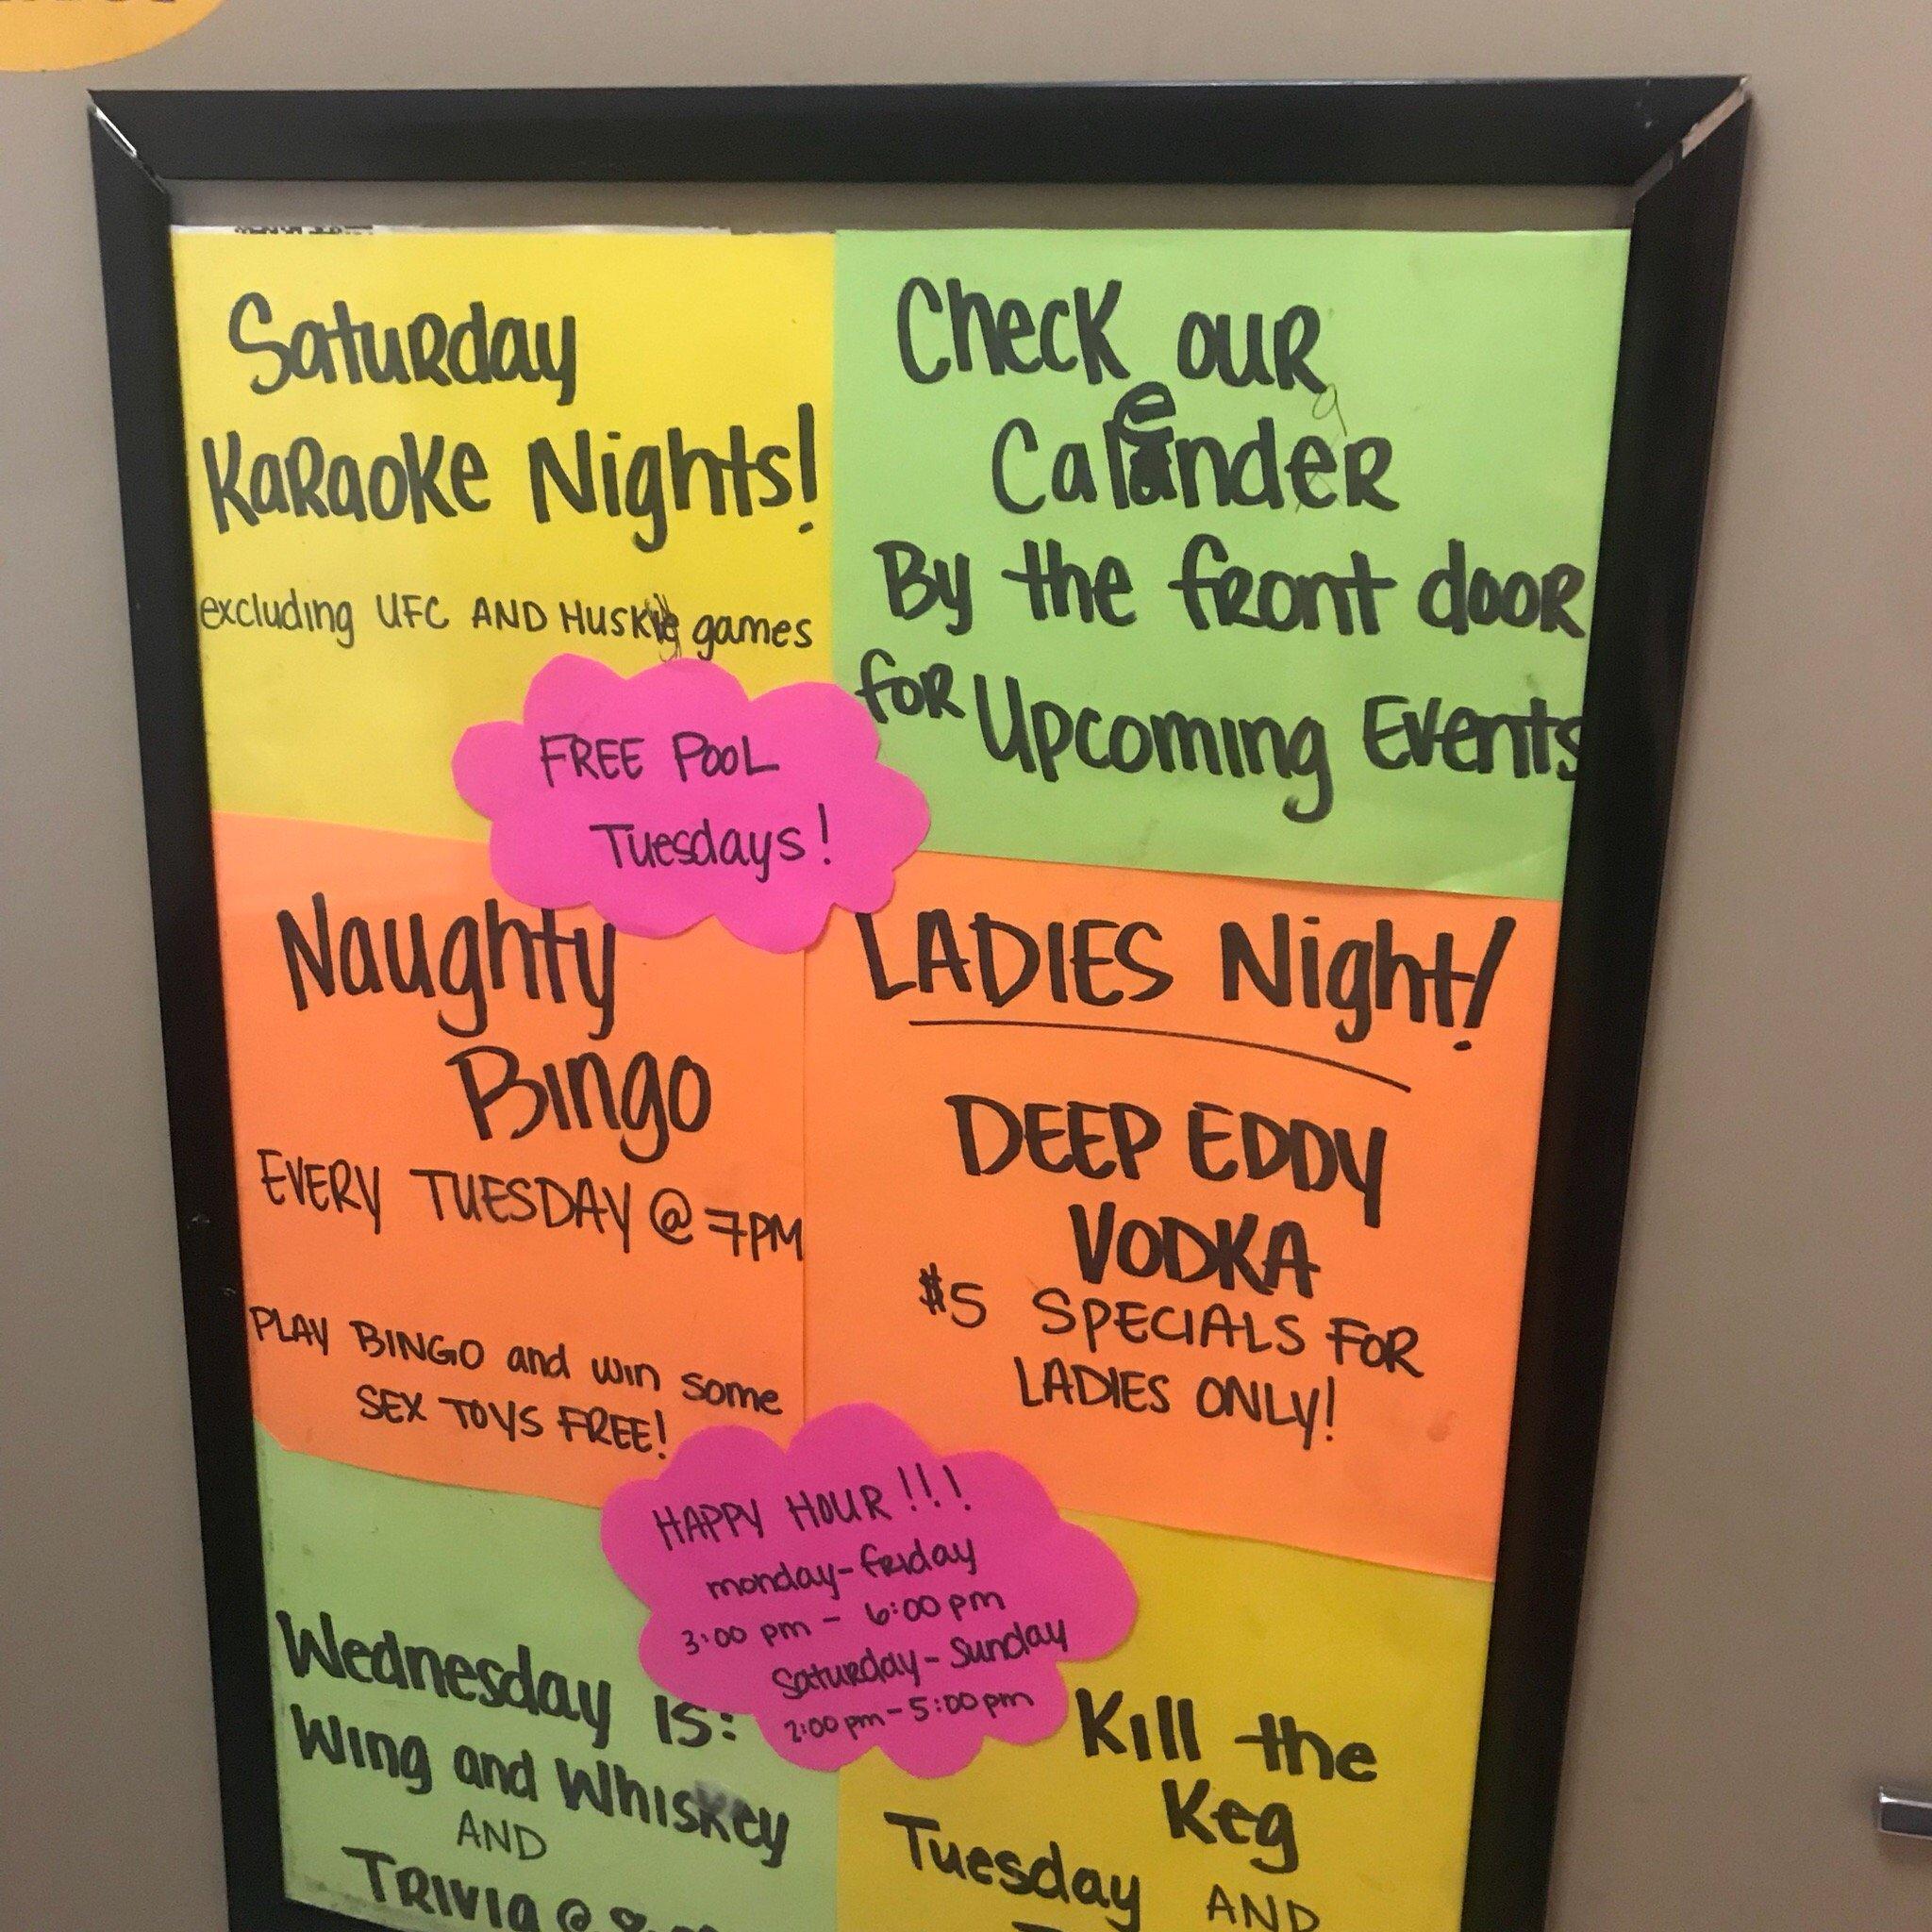 Saturday
Karaoke Nights!
excluding UFC AND HUSKY games
Check our
Calender
By the front door
for Upcoming Events
FREE POOL
Tuesdays!
Naughty
Bingo
EVERY TUESDAY @ 7PM
PLAY BINGO and win some
SEX TOYS FREE!
LADIES Night!
DEEP EDDY
VODKA
$5 SPECIALS FOR
LADIES ONLY!
HAPPY HOUR!!!
monday-friday
3:00 pm - 6:00 pm
Saturday-Sunday
2:00 pm-5:00pm
Wednesday is:
Wing and Whiskey
AND
TRIVIA @
Kill the
Keg
Tuesday AND